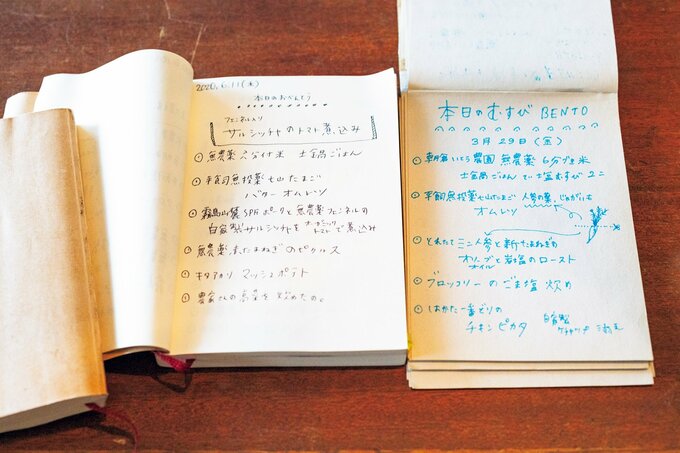 2020.6.11(木)
本日のおべんとう
フェンネル入り
サルシッチャのトマト煮込み
無農薬 分付米 土鍋ごはん
平飼無投薬七山たまご
バターオムレツ
霧島山麓SPFポークと無農薬フェンネルの
自家製サルシッチャをオーガニック
トマトで煮込み
無農薬 たまねぎのピクルス
キタアカリ マッシュポテト
農家さんの高菜を炒めたの。
本日のむすび BENTO
3月29日(金)
朝倉いとう農園 無農薬 6分づき米
土鍋ごはんで塩むすび2コ
平飼無投薬七山たまご 人参の葉、じゃがいも
オムレツ
とれたてミニ人参と新たまねぎの
オリーブと岩塩のロースト
オイル
ブロッコリーのごま塩炒め
しおかた一番どりの
チキンピカタ
自家製
ケチャップ